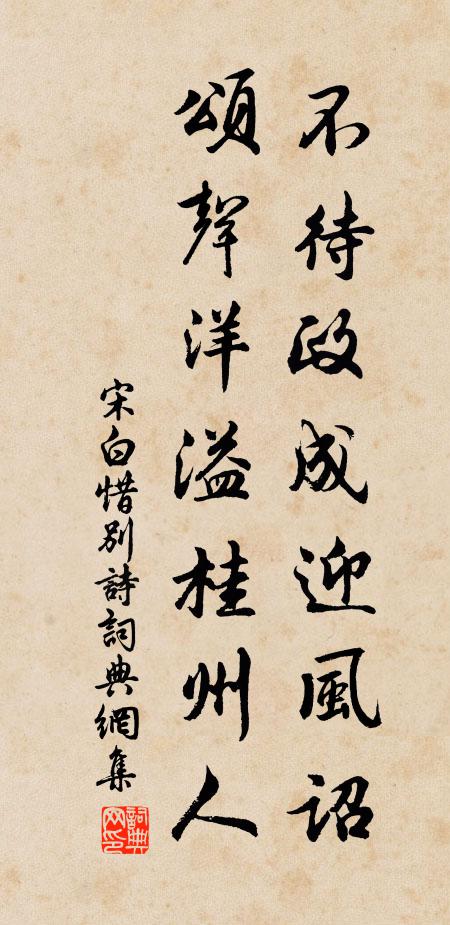 不待政成迎風詔
頌聲洋溢桂州人
宋白惜別詩詞典網集
詞典網印